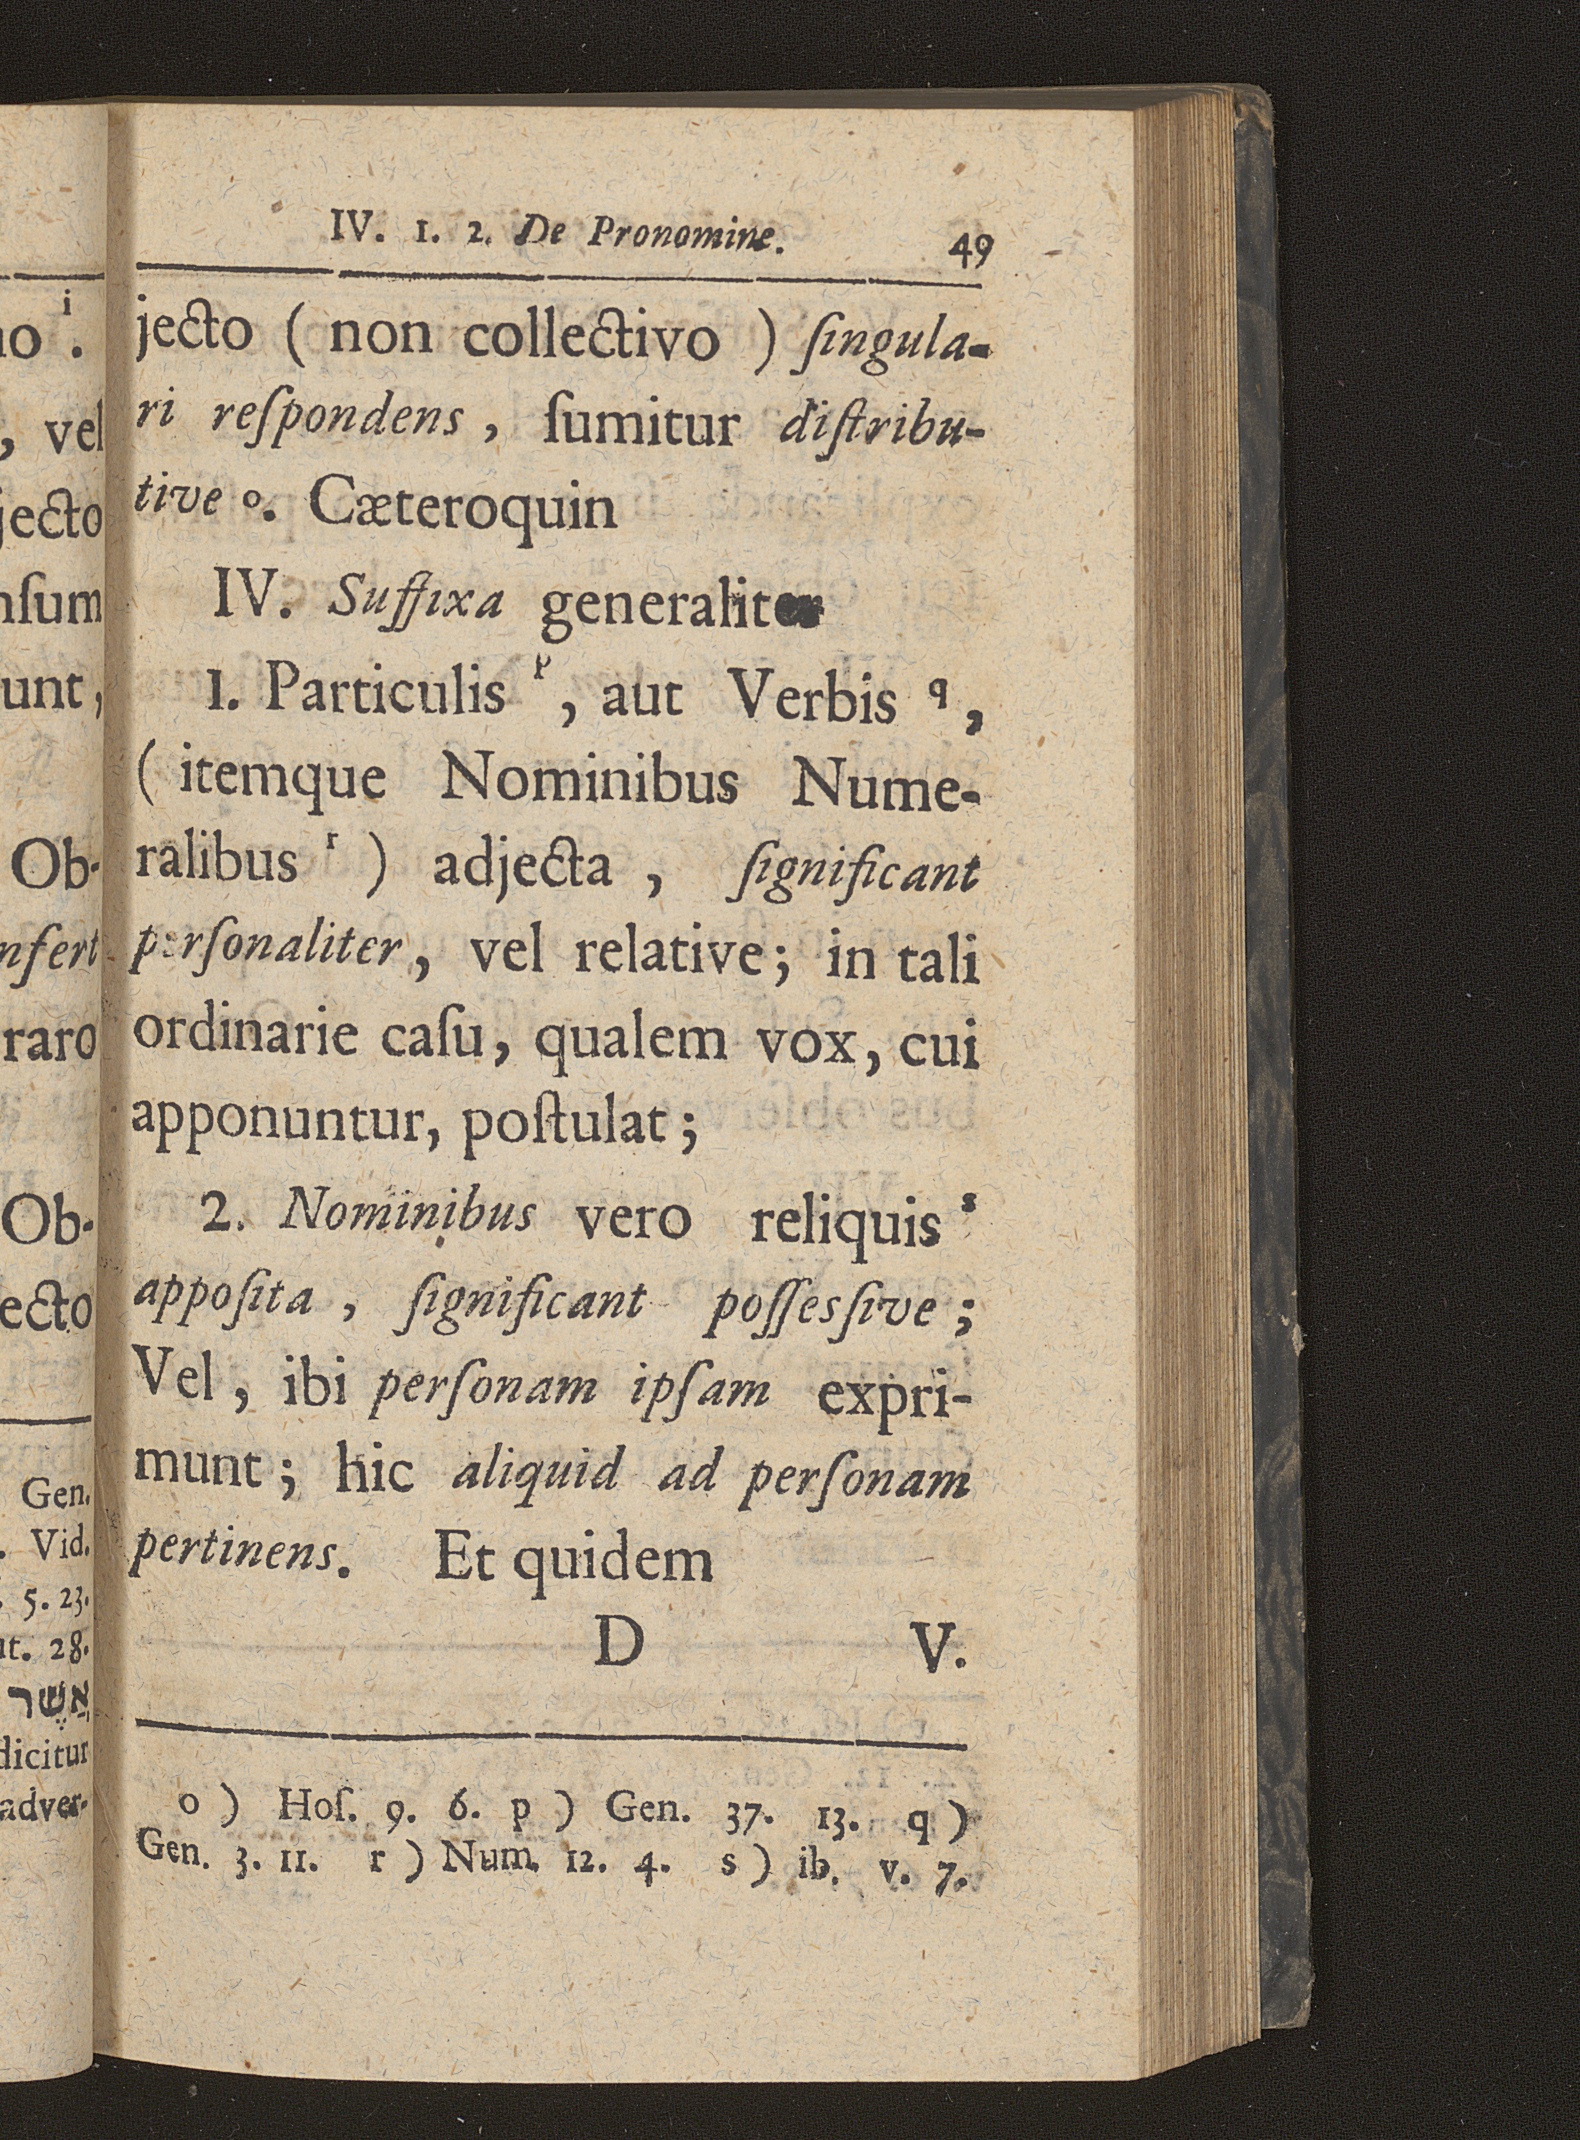 IV. 1. 2. De Pronomine. 49
jecto ( non collectivo ) ſingula-
ri reſpondens, ſumitur diſtribu-
tive o. Cæteroquin
IV. Suffixa generaliter
1. Particulis p, aut Verbis q,
( itemque Nominibus Nume-
ralibus r ) adjecta, ſignificant
perſonaliter, vel relative; in tali
ordinarie caſu, qualem vox, cui
apponuntur, poſtulat;
2. Nominibus vero reliquis s
appoſita, ſignificant poſſesſive;
Vel, ibi perſonam ipſam expri-
munt; hic aliquid ad perſonam
pertinens. Et quidem
D V.
o ) Hoſ. 9. 6. p ) Gen. 37. 13. q )
Gen. 3. 11. r ) Num. 12. 4. s ) ib. v. 7.
i
, vel
jecto
unt,
Ob-
nfert
raro
Ob-
ecto
Gen.
. Vid.
. 5. 23.
ut. 28.
אֲשֶׁר
dicitur
adver-